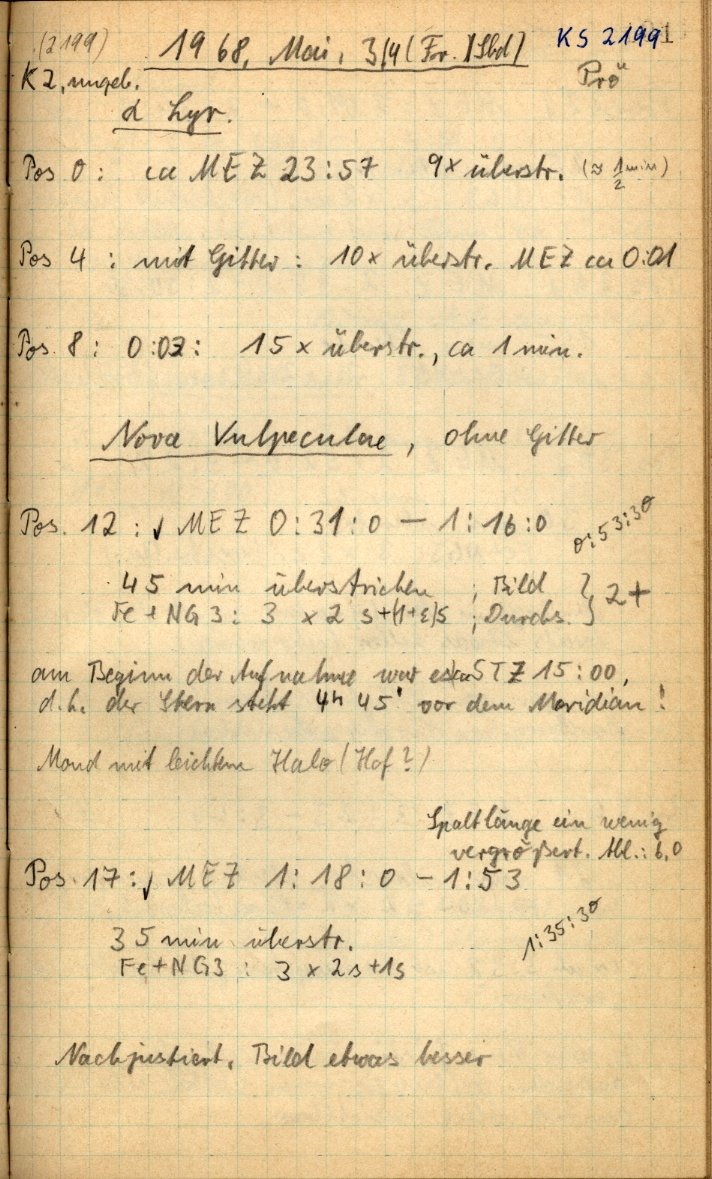 (2199) 1968, Mai, 3/4 (Fr./Sbd) KS 2199
K2, ungeb. Prö
α Lyr.
Pos 0: ca MEZ 23:57 9x überstr. (≈ 1/2 min)
Pos 4: mit Gitter: 10x überstr. MEZ ca 0:01
Pos. 8: 0:03: 15x überstr., ca 1 min.
Nova Vulpeculae, ohne Gitter
Pos. 12: MEZ 0:31:0 – 1:16:0 0:53:30
45 min überstrichen ; Bild } 2+
Fe + NG3: 3 x 2s+(1+ε)s ; Durchs.
am Beginn der Aufnahme war es ca STZ 15:00,
d.h. der Stern steht 4h 45' vor dem Meridian!
Mond mit leichtem Halo (Hof?)
Spaltlänge ein wenig
vergrößert. Abl.: 6,0
Pos. 17: MEZ 1:18:0 – 1:53
1:35:30
35 min überstr.
Fe+NG3: 3 x 2s+1s
Nachjustiert, Bild etwas besser